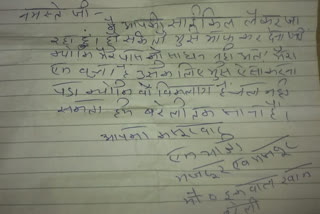 नमस्ते जी -
मैं आपकी साईकिल लेकर जा
रहा हूं। हो सके तो मुझे माफ कर देना जी
क्योंकि मेरे पास कोई साधन नहीं है मेरा
एक बच्चा है उसके लिए मुझे ऐसा करना
पड़ा क्योंकि वो विकलांग है चल नहीं
सकता हमें बरेली तक जाना है।
आपका कसूरवार
एक यात्री
मजदूर एवं मजबूर
मो० इकबाल खान
बरेली